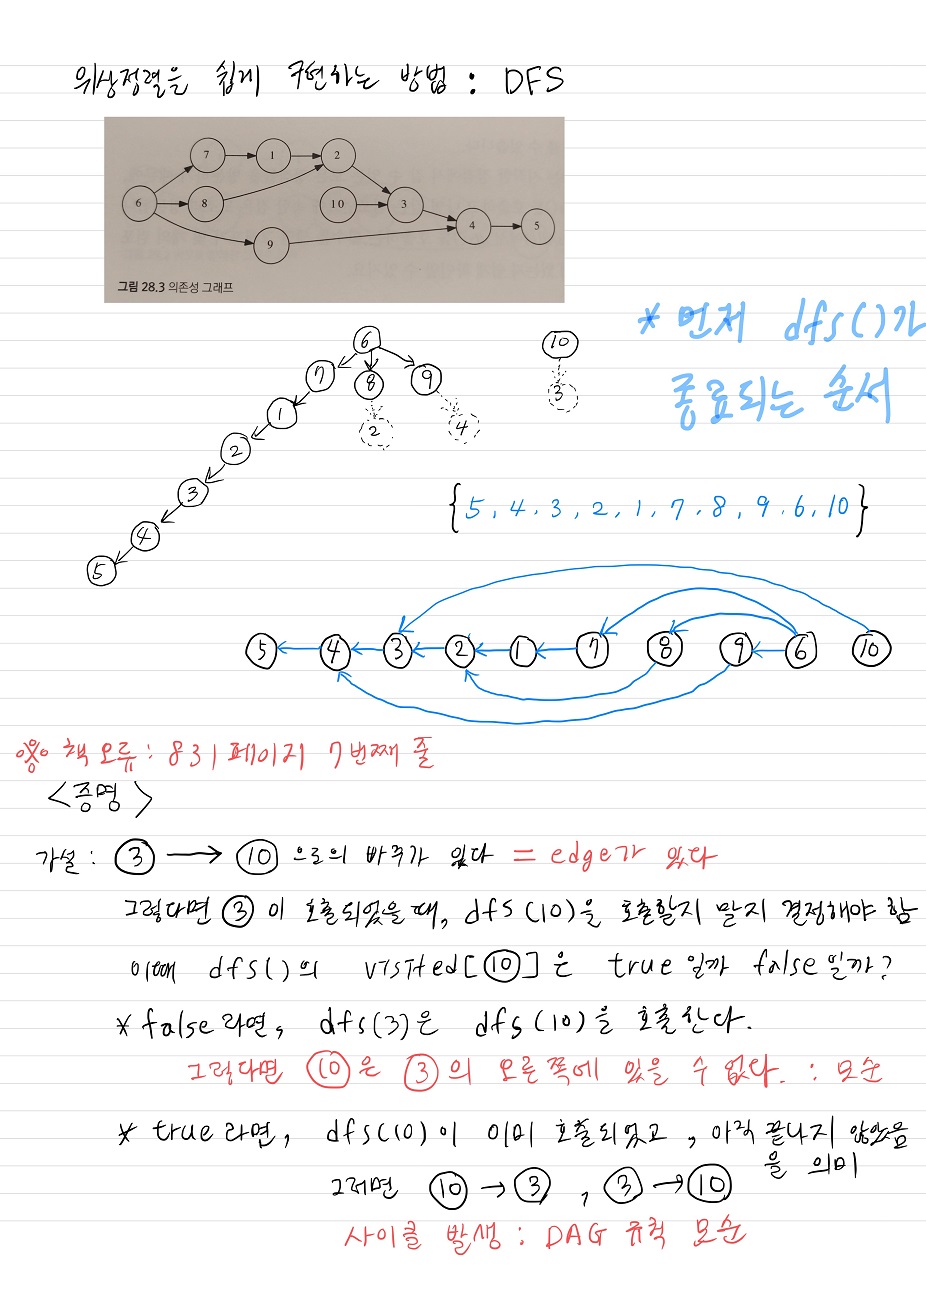 위상정렬을 쉽게 구현하는 방법 : DFS
7 1 2
6 8 10 3
4 5
9
그림 28.3 의존성 그래프
* 먼저 dfs()가
종료되는 순서
6 10
7 8 9 3
1 2 4
2
3
4
5
{5, 4, 3, 2, 1, 7, 8, 9, 6, 10}
5 4 3 2 1 7 8 9 6 10
※ 책 오류 : 831 페이지 7번째 줄
<증명>
가설 : 3 → 10 으로의 바주가 있다 = edge가 있다
그렇다면 3 이 호출되었을 때, dfs (10)을 호출할지 말지 결정해야 함
이때 dfs()의 visited[10]은 true일까 false일까?
* false라면, dfs(3)은 dfs(10)을 호출한다.
그렇다면 10은 3의 오른쪽에 있을 수 없다. : 모순
* true라면, dfs(10)이 이미 호출되었고, 아직 끝나지 않았음
을 의미
그러면 10 → 3 , 3 → 10
사이클 발생 : DAG 규칙 모순